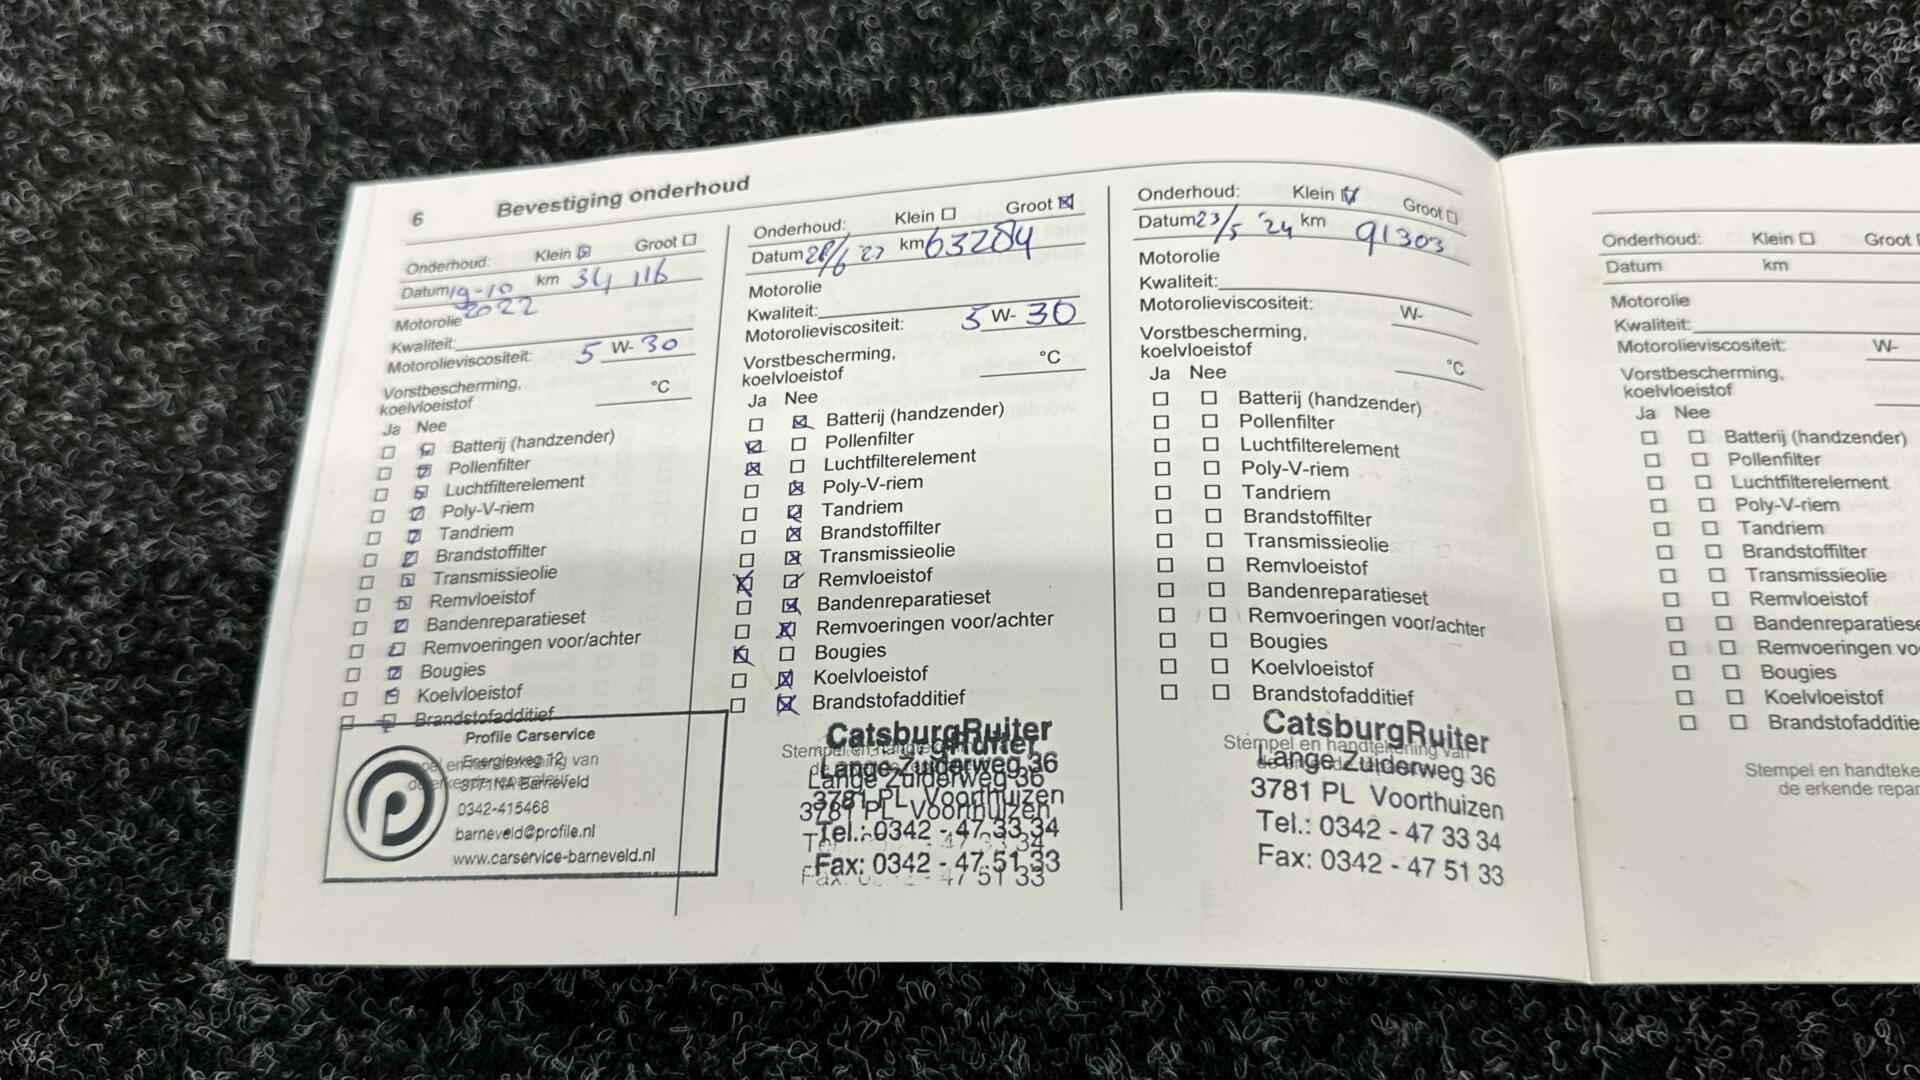 6 Bevestiging onderhoud
Onderhoud: Klein ☒ Groot ☐
Datum 19-10 km 34 116
2022
Motorolie
Kwaliteit:
Motorolieviscositeit: 5 W- 30
Vorstbescherming,
koelvloeistof °C
Ja Nee
Batterij (handzender)
Pollenfilter
Luchtfilterelement
Poly-V-riem
Tandriem
Brandstoffilter
Transmissieolie
Remvloeistof
Bandenreparatieset
Remvoeringen voor/achter
Bougies
Koelvloeistof
Brandstofadditief
Profile Carservice
Energieweg 12
3771NA Barneveld
0342-415468
barneveld@profile.nl
www.carservice-barneveld.nl
Onderhoud: Klein ☐ Groot ☒
Datum km 63284
Motorolie
Kwaliteit:
Motorolieviscositeit: 5 W- 30
Vorstbescherming,
koelvloeistof °C
Ja Nee
Batterij (handzender)
Pollenfilter
Luchtfilterelement
Poly-V-riem
Tandriem
Brandstoffilter
Transmissieolie
Remvloeistof
Bandenreparatieset
Remvoeringen voor/achter
Bougies
Koelvloeistof
Brandstofadditief
CatsburgRuiter
Lange Zuiderweg 36
3781 PL Voorthuizen
Tel.: 0342 - 47 33 34
Fax: 0342 - 47 51 33
Onderhoud: Klein ☒ Groot ☐
Datum 23/5 '24 km 91303
Motorolie
Kwaliteit:
Motorolieviscositeit: W-
Vorstbescherming,
koelvloeistof °C
Ja Nee
Batterij (handzender)
Pollenfilter
Luchtfilterelement
Poly-V-riem
Tandriem
Brandstoffilter
Transmissieolie
Remvloeistof
Bandenreparatieset
Remvoeringen voor/achter
Bougies
Koelvloeistof
Brandstofadditief
Stempel en handtekening van
CatsburgRuiter
Lange Zuiderweg 36
3781 PL Voorthuizen
Tel.: 0342 - 47 33 34
Fax: 0342 - 47 51 33
Onderhoud: Klein ☐ Groot
Datum km
Motorolie
Kwaliteit:
Motorolieviscositeit: W-
Vorstbescherming,
koelvloeistof
Ja Nee
Batterij (handzender)
Pollenfilter
Luchtfilterelement
Poly-V-riem
Tandriem
Brandstoffilter
Transmissieolie
Remvloeistof
Bandenreparatiese
Remvoeringen vo
Bougies
Koelvloeistof
Brandstofadditie
Stempel en handteke
de erkende repar